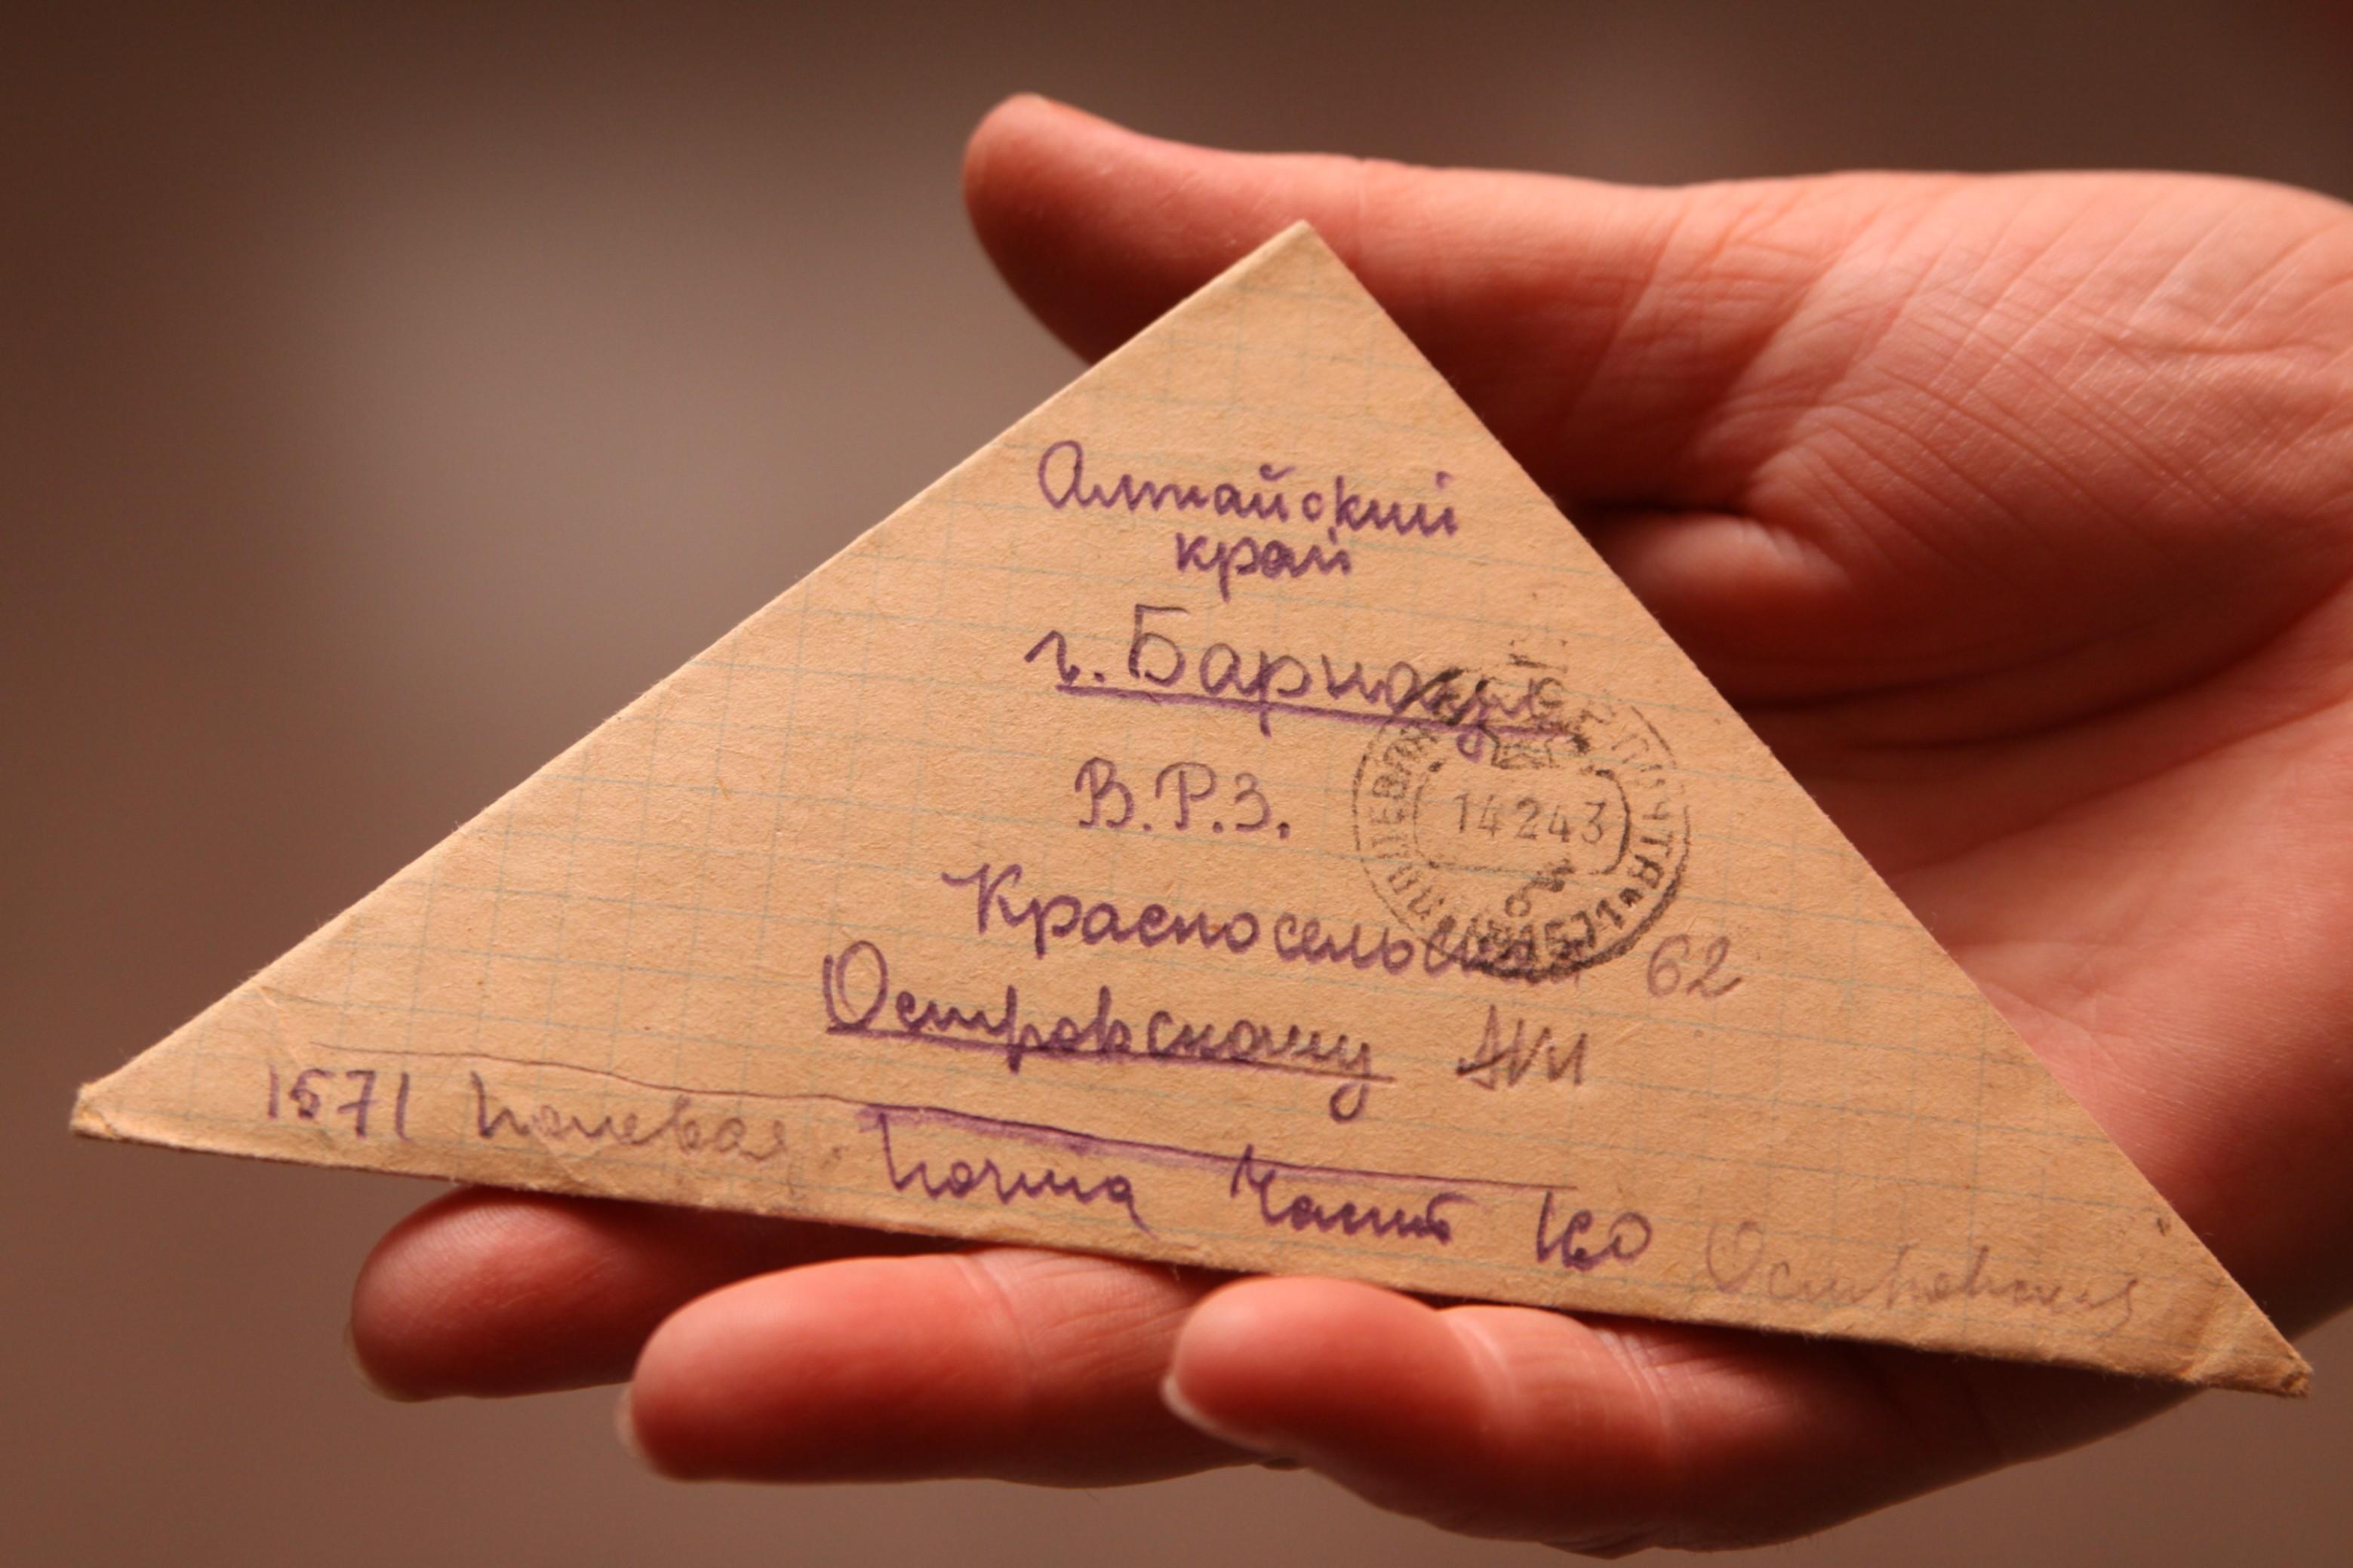 Алтайский
край
г. Барнаул
В.Р.З.
Красносельская 62
Островскому АИ
1571 полевая почта часть 160
ПОЛЕВАЯ ПОЧТА 1571
14 2 43